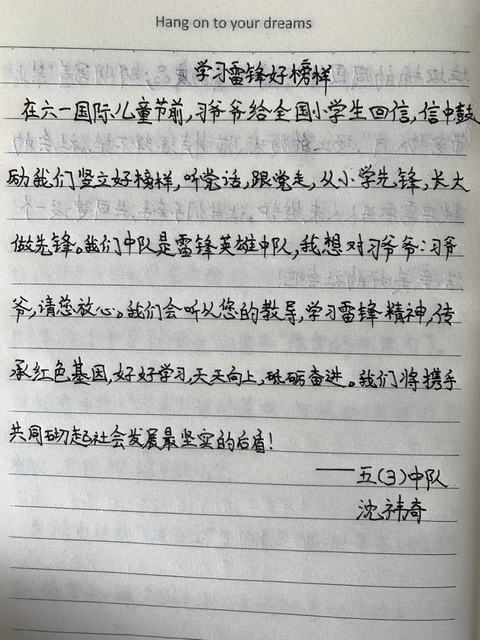 Hang on to your dreams
学习雷锋好榜样
在六一国际儿童节前,习爷爷给全国小学生回信,信中鼓
励我们竖立好榜样,听党话,跟党走,从小学先锋,长大
做先锋。我们中队是雷锋英雄中队,我想对习爷爷:习爷
爷,请您放心。我们会听从您的教导,学习雷锋精神,传
承红色基因,好好学习,天天向上,砥砺奋进。我们将携手
共同砌起社会发展最坚实的后盾!
——五(3)中队
沈祎奇